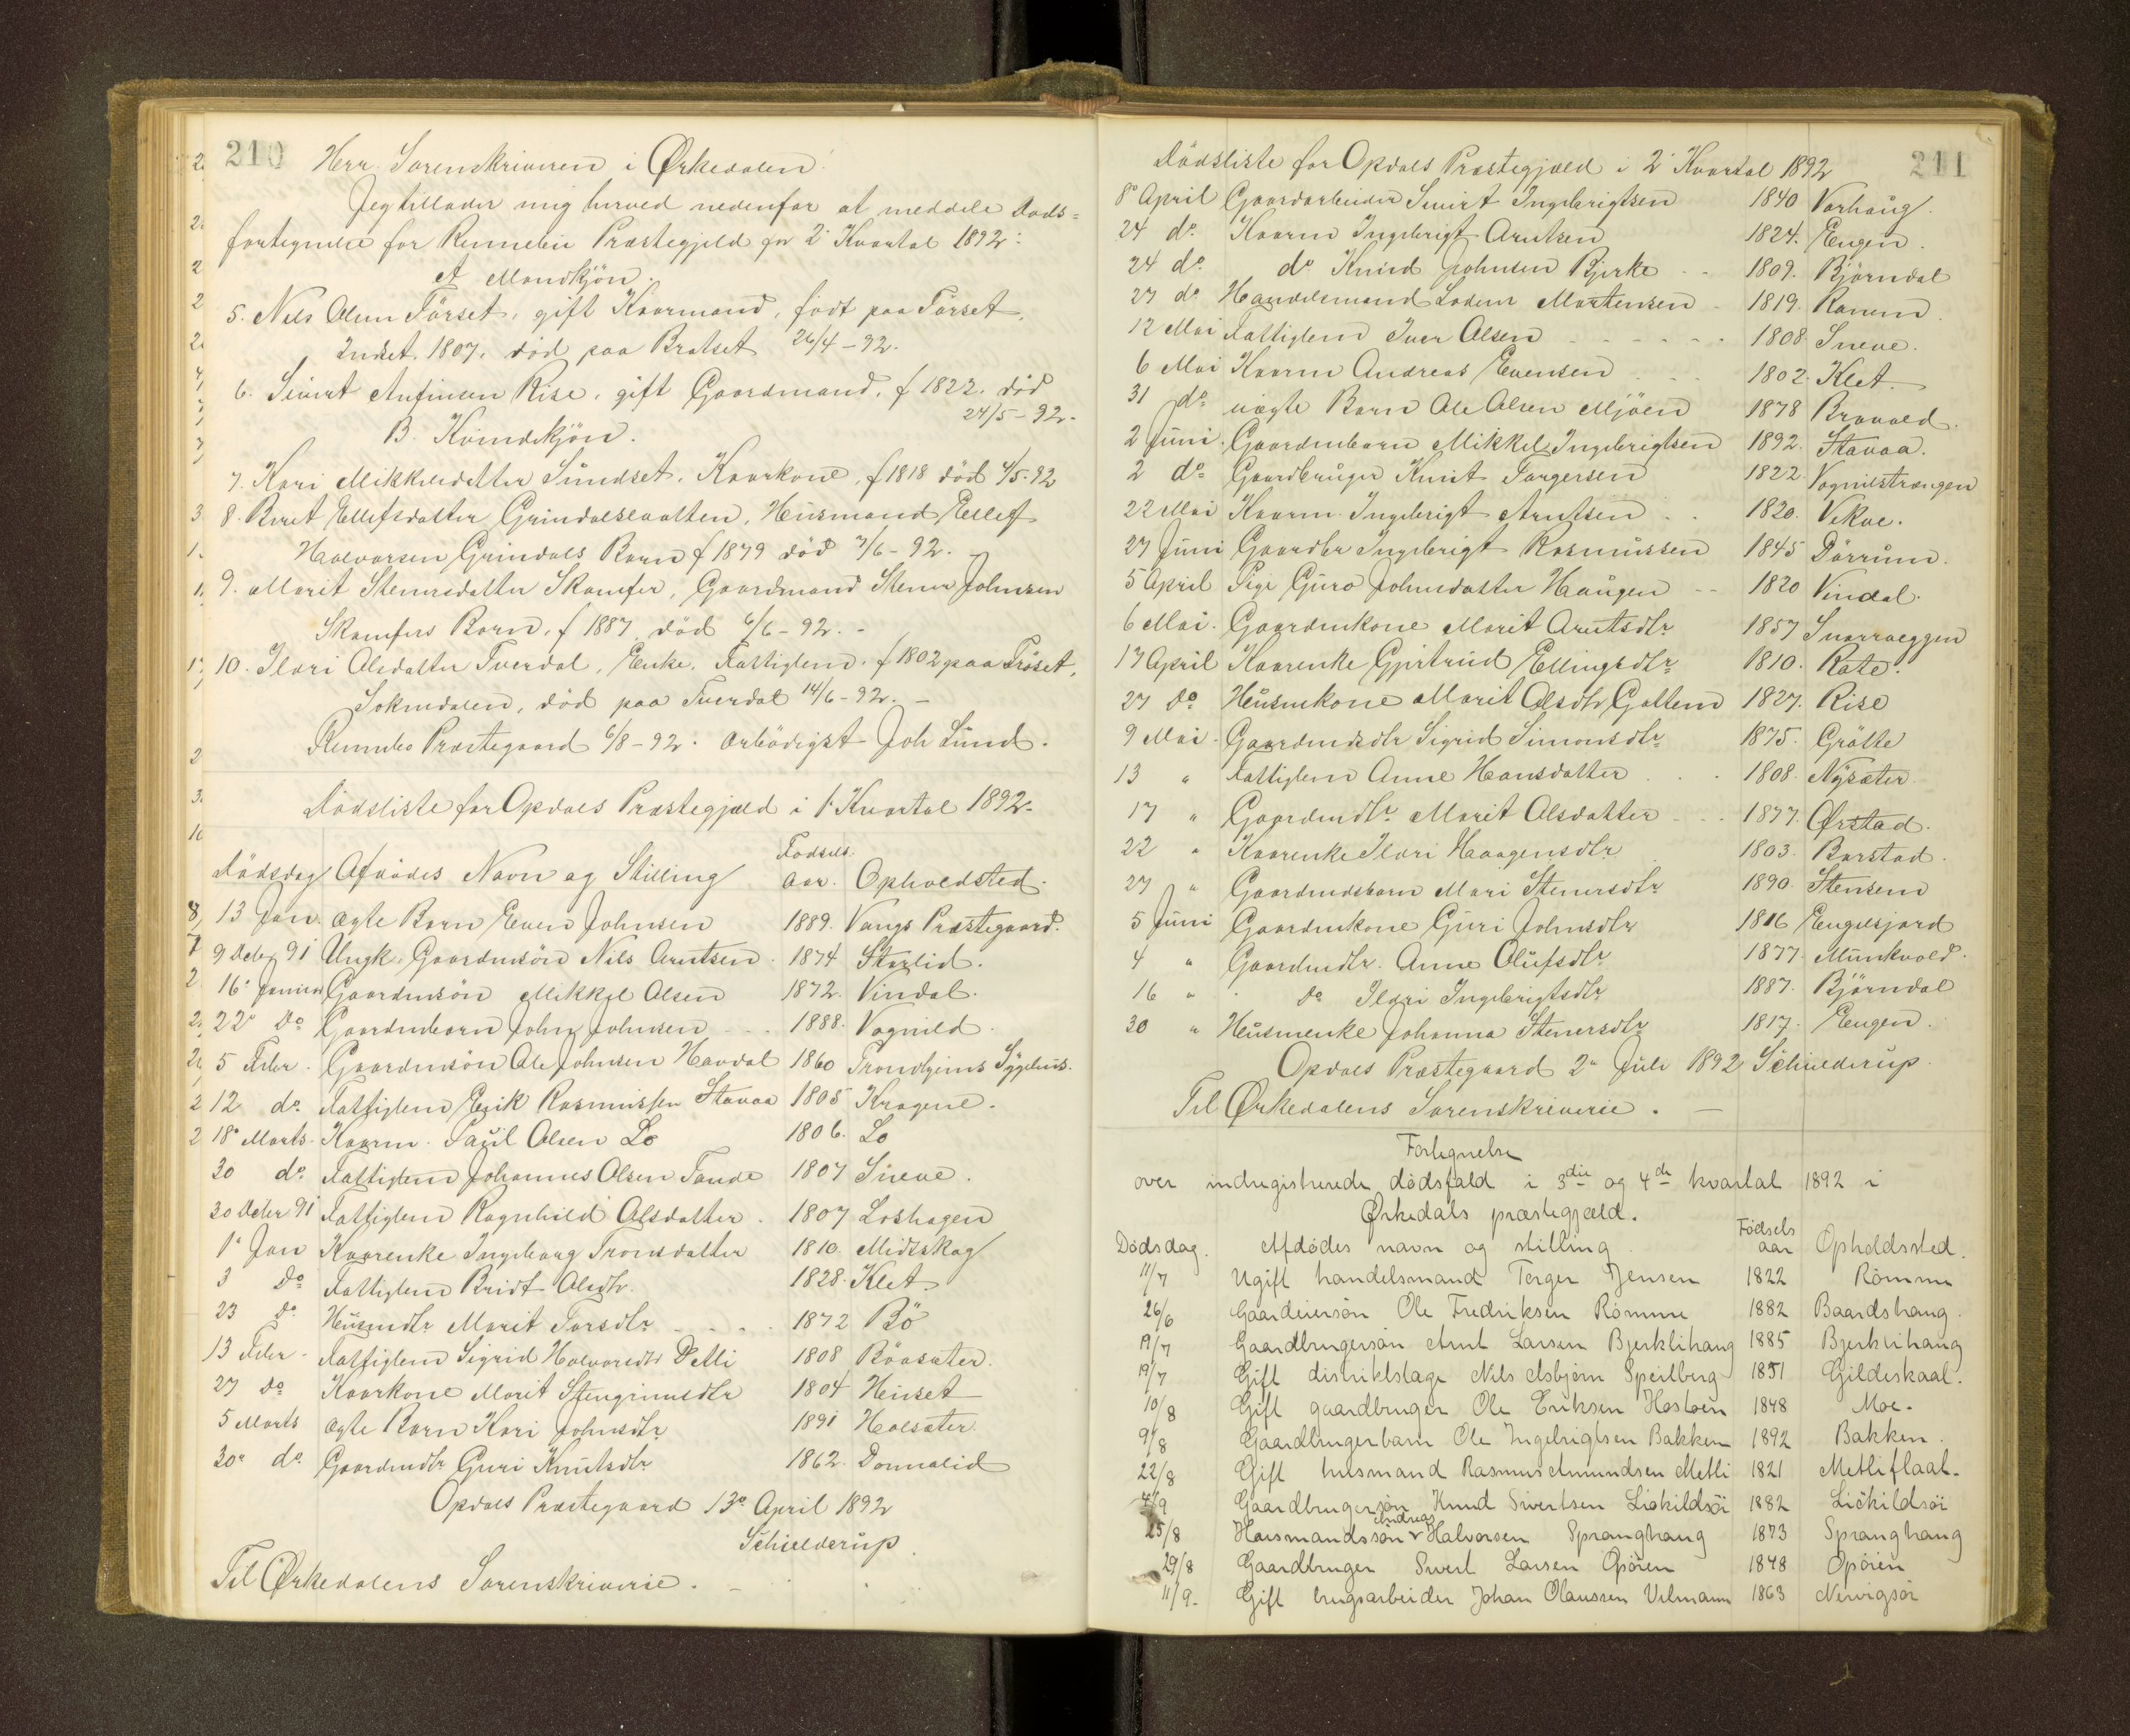 210
Herr Sorenskriveren i Ørkedalen
Jeg tillader mig herved nedenfor at meddele Døds=
fortegnelse for Rennebu Præstegjeld for 2' Kvartal 1892:
A Mandkjøn.
5. Nils Olsen Førset, gift Kaarmand, født paa Førset,
Indset. 1807. død paa Bratset 26/4-92.
6. Sivert Anfinsen Rise, gift Gaardmand, f 1822. død
24/5-92.
B. Kvindekjøn.
7. Kari Mikkelsdatter Sundset. Kaarkone, f 1818 død 4/5-92
8. Beret Ellefsdatter Grindalslaatten, Husmand Ellef
Halvorsen Grindals Barn f 1879 død 7/6-92.
9. Marit Stenersdatter Skamfer, Gaardmand Stener Johnsen
Skamfers Barn, f 1887 død 6/6-92. -
10. Ildri Olsdatter Tverdal, Enke. Fattiglem. f 1802 paa Frøset,
Soknedalen, død paa Tverdal 14/6-92. -
Rennebo Præstegaard 6/8-92. Ærbødigst Joh Lund.
Dødsliste for Opdals Præstegjæld i 1' Kvartal 1892.
Dødsdag Afdødes Navn og Stilling Fødsels aar. Opholdsted.
13 Jan. ægte Barn Even Johnsen 1889. Vangs Præstegaard.
9 Debr 91 Ungk. Gaardmsøn Nils Arntsen. 1874 Storlid.
16' Januar Gaardmsøn Mikkel Olsen 1872. Vindal.
22' Do Gaardmbarn John Johnsen 1888. Vognild.
5 Febr. Gaardmsøn Ole Johnsen Havdal 1860 Trondhjems Sygehus.
12 do. Fattiglem Erik Rasmussen Stavaa 1805 Kragene.
18' Marts. Kaarm. Paul Olsen Lo 1806. Lo
30 do. Fattiglem Johannes Olsen Tande 1807 Sneve.
30 Debr 91 Fattiglem Ragnhild Olsdatter. 1807 Loshagen
1' Jan Kaarenke Ingeborg Tronsdatter 1810. Midtskog
3 Do Fattiglem Bridt Olsdtr. 1828. Klet
23 do. Husmdtr Marit Torsdtr 1872 Bö
13 Febr. Fattiglem Sigrid Halvorsdtr Detli 1808 Böasæter.
27 Do Kaarkone Marit Stengrimsdtr 1804 Heuset
5 Marts ægte Barn Kari Johnsdtr 1891 Holsæter.
30' do. Gaardmdtr Guri Knutsdtr 1862. Donnalid
Opdals Præstegaard 13' April 1892
Schielderup.
Til Ørkedalens Sorenskriverie. -
211
Dødsliste for Opdals Præstegjæld i 2' Kvartal 1892
8' April Gaardarbeider Sivert Ingebrigtsen 1840 Vorhaug.
24 do. Kaarm Ingebrigt Arntsen 1824. Engen.
24 do. do Knud Johnsen Bjerke 1809. Björndal
27 do Handelsmand Lodem Mortensen 1819. Ranem
12 Mai Fattiglem Iver Olsen 1808 Sneve.
6 Mai Kaarm Andreas Evensen 1802. Klet.
31 do uægte Barn Ole Olsen Mjöen 1878 Bravold.
2 Juni. Gaardmbarn Mikkel Ingebrigtsen 1892. Stavaa.
2 do Gaardbruger Knut Torgersen 1822. Vognilstrængen
22 Mai Kaarm Ingebrigt Arntsen 1820. Vekve.
27 Juni Gaardbr Ingebrigt Rasmussen 1845 Dörrum.
5 April Pige Guro Johnsdatter Haugen 1820 Vindal.
6 Mai. Gaardmkone Marit Arntsdtr 1857 Snarræggen
17 April Kaarenke Gjertrud Ellingsdtr 1810. Rate.
27 Do Husmkone Marit Olsdtr Gottem 1827. Rise
9 Mai. Gaardmdtr Sigrid Simonsdtr 1875. Grötte
13 " Fattiglem Anne Hansdatter 1808. Nysæter
17 " Gaardmdtr Marit Olsdatter 1877. Ørstad.
22 " Kaarenke Ildri Haagensdtr 1803. Barstad.
27 " Gaardmdsbarn Mari Stenersdtr 1890. Stensem
5 Juni Gaardmkone Guri Johnsdtr 1816 Engelsjord
4 " Gaardmdtr. Anne Olufsdtr 1877. Munkvold.
16 " do Ildri Ingebrigtsdtr 1887. Björndal
30 " Husmenke Johanna Stenersdtr 1817. Engen.
Opdals Præstegaard 2' Juli 1892 Schielderup.
Til Ørkedalens Sorenskriverie. -
Fortegnelse
over indregistrerede dødsfald i 3die og 4de kvartal 1892 i
Ørkedals præstegjæld.
Dödsdag. Afdödes navn og stilling. Födsels aar Opholdssted.
11/7 Ugift handelsmand Torger Jensen 1822 Römme
26/6 Gaardeiersön Ole Fredriksen Römme 1882 Baardshaug.
19/7 Gaardbrugersön Arnt Larsen Bjerklihaug 1885 Bjerklihaug
19/7 Gift distriktslæge Nils Asbjörn Speilberg 1851 Gildeskaal.
10/8 Gift gaardbruger Ole Eriksen Hostoen 1848 Moe.
9/8 Gaardbrugerbarn Ole Ingebrigtsen Bakken 1892 Bakken.
22/8 Gift husmand Rasmus Amundsen Metli 1821 Metliflaat.
4/9 Gaardbrugersön Knud Sivertsen Liokildsöi 1882 Liökildsöi
25/8 Husmandssön Andreas Halvorsen Spranghaug 1873 Spranghaug
29/8 Gaardbruger Sivert Larsen Opöien 1848 Opöien
11/9. Gift brugsarbeider Johan Olaussen Velmann 1863 Nervigsöi